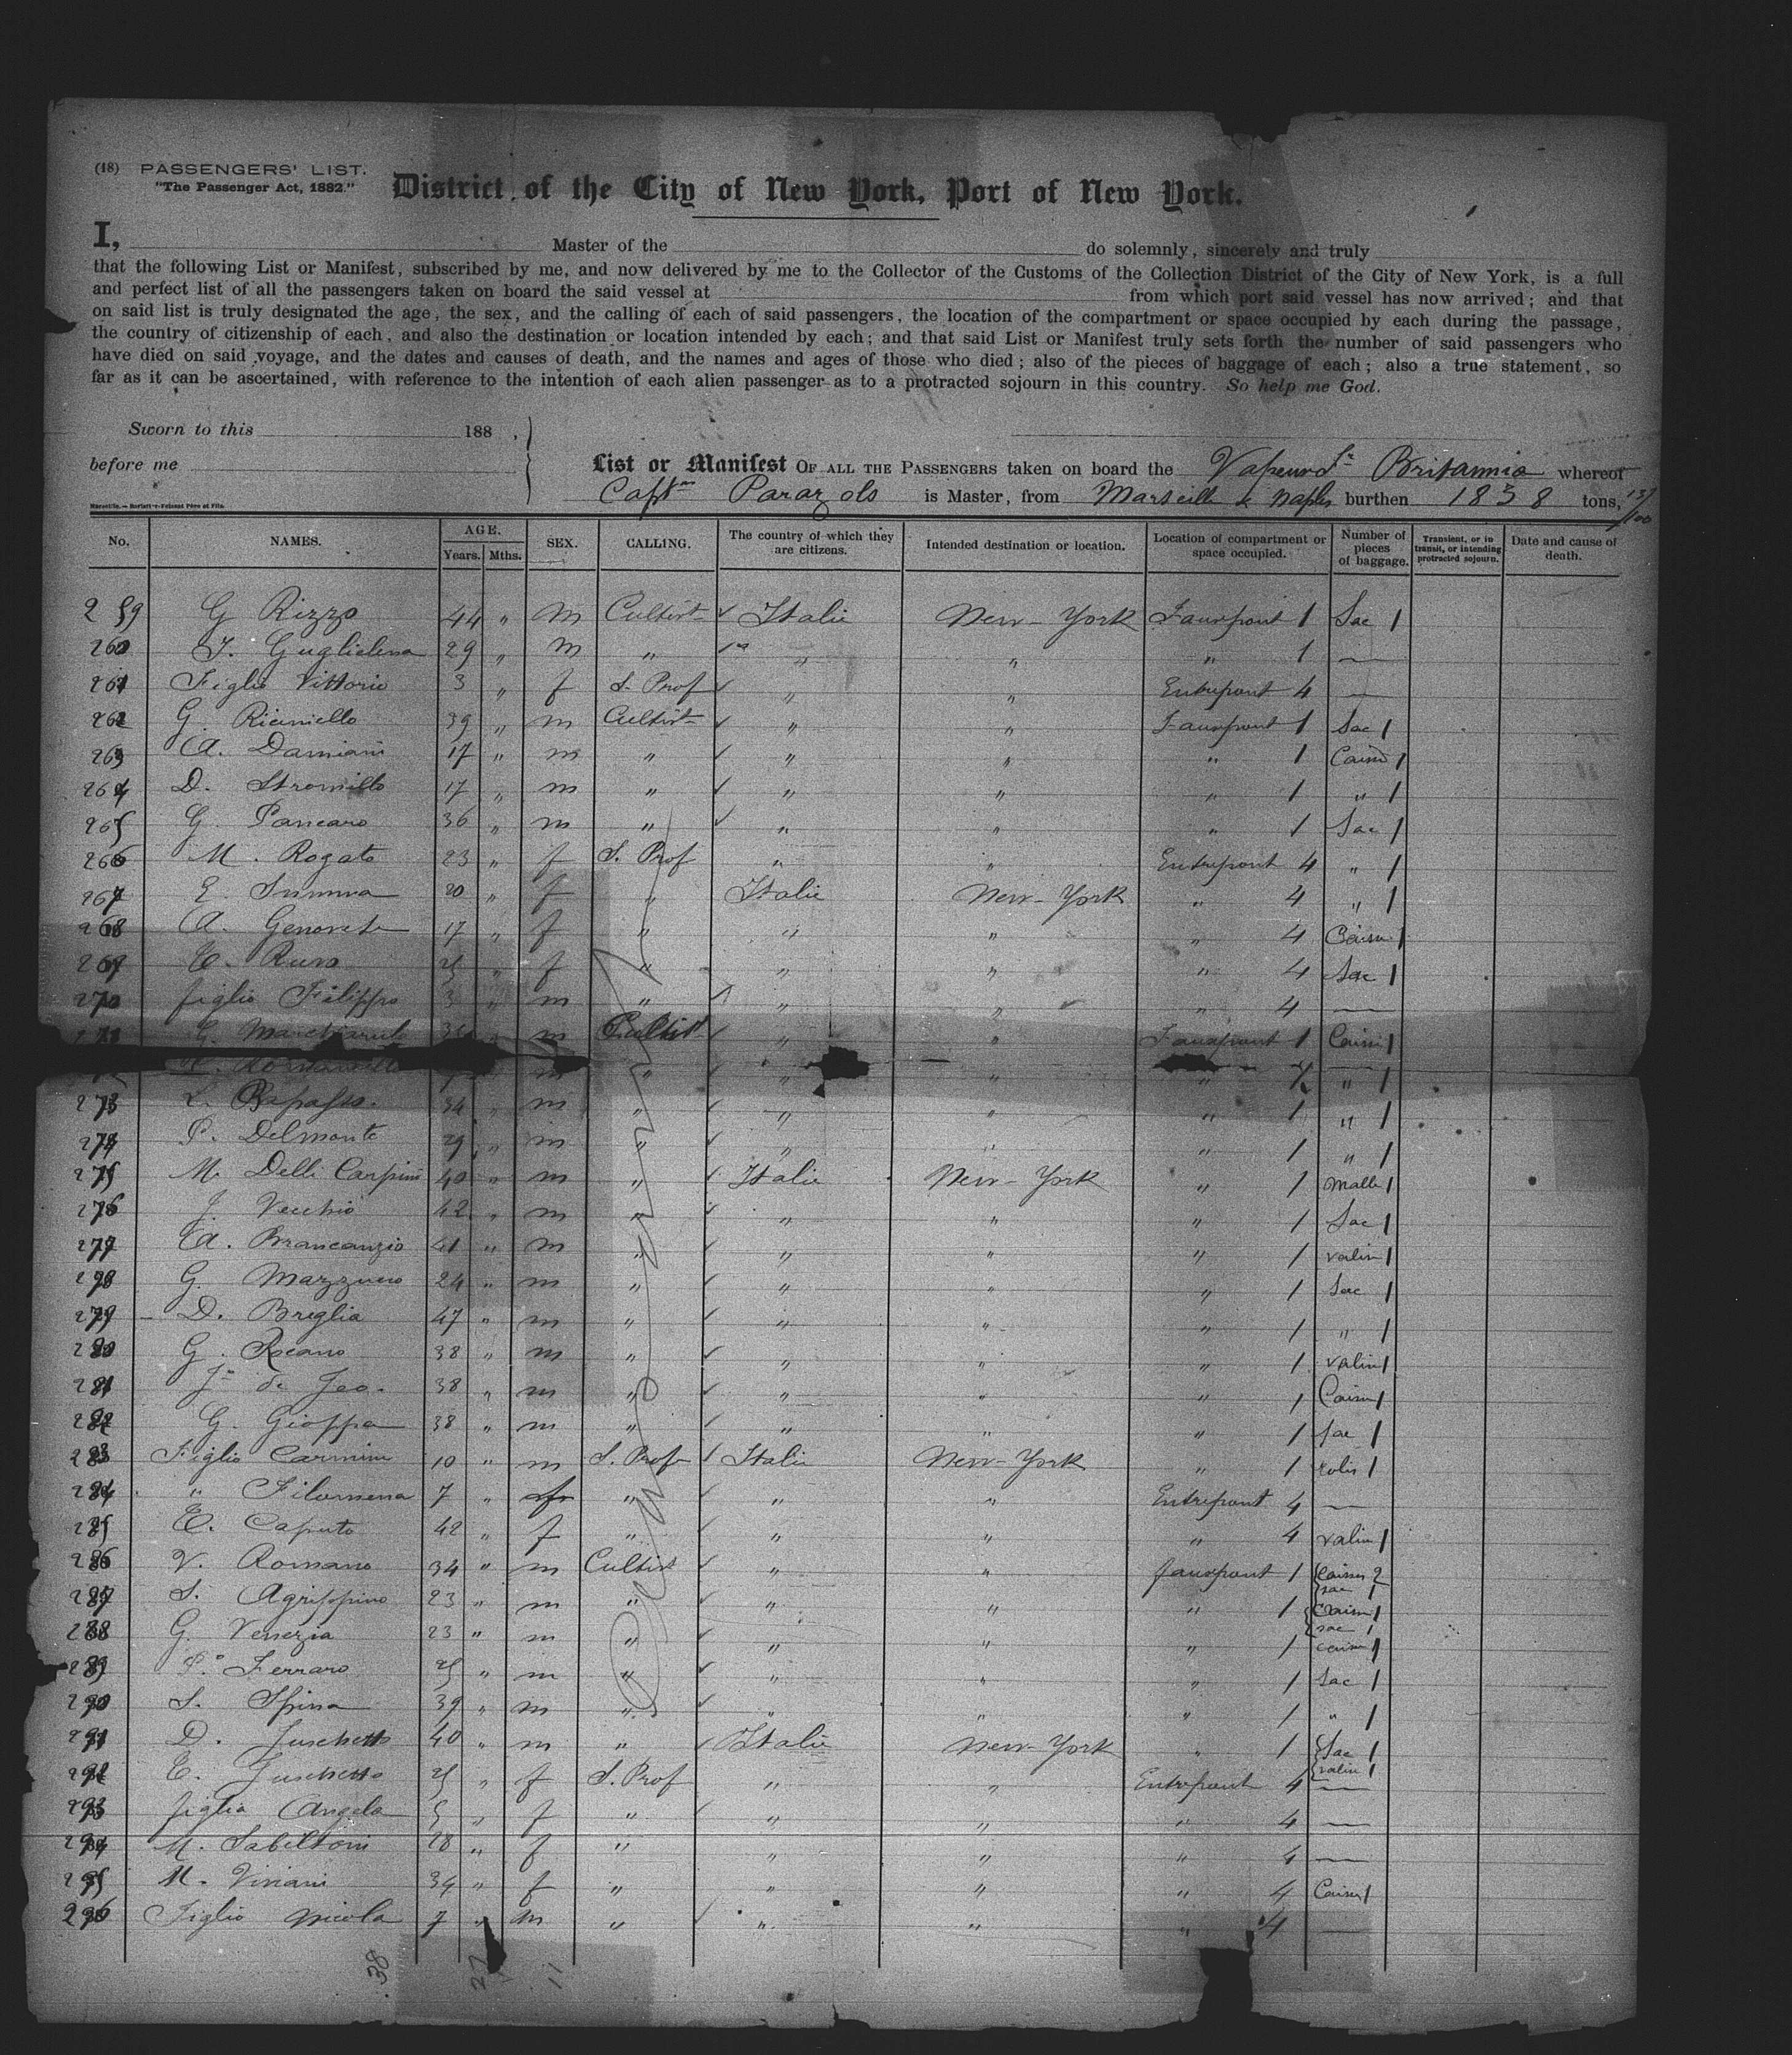 (18) PASSENGERS' LIST.
"The Passenger Act, 1882."
District of the City of New York, Port of New York.
I, Master of the do solemnly, sincerely and truly
that the following List or Manifest, subscribed by me, and now delivered by me to the Collector of the Customs of the Collection District of the City of New York, is a full
and perfect list of all the passengers taken on board the said vessel at from which port said vessel has now arrived; and that
on said list is truly designated the age, the sex, and the calling of each of said passengers, the location of the compartment or space occupied by each during the passage,
the country of citizenship of each, and also the destination or location intended by each; and that said List or Manifest truly sets forth the number of said passengers who
have died on said voyage, and the dates and causes of death, and the names and ages of those who died; also of the pieces of baggage of each; also a true statement, so
far as it can be ascertained, with reference to the intention of each alien passenger as to a protracted sojourn in this country. So help me God.
Sworn to this 188 ,
before me
List or Manifest OF ALL THE PASSENGERS taken on board the Vapeur Britannia whereof
Capt Pararols is Master, from Marseille & Naples burthen 1838 tons,
No. NAMES. AGE. Years. Mths. SEX. CALLING. The country of which they are citizens. Intended destination or location. Location of compartment or space occupied. Number of pieces of baggage. Transient, or in transit, or intending protracted sojourn. Date and cause of death.
259 G Rizzo 44 " m Cultivt Italie New-York Fauxpont 1 Sac 1
260 29 " m " " " " 1 —
261 Figlio Vittorio 3 " f S. Prof " " Entrepont 4 —
262 G. 39 " m Cultivt " " Fauxpont 1 Sac 1
263 A. Damiani 17 " m " " " " 1 1
264 D. Stromillo 17 " m " " " " 1 " 1
265 G. Pancaro 36 " m " " " " 1 Sac 1
266 M. Rogato 23 " f S. Prof " " Entrepont 4 " 1
267 E. Summa 20 " f " Italie New-York " 4 " 1
268 A. 17 " f " " " " 4 1
269 25 " f " " " " 4 Sac 1
270 figlio Filippo 3 " m " " " " 4 —
m Cultivt " " Fauxpont 1 1
m " " " " 1 " 1
273 34 " m " " " " 1 " 1
274 P. Delmonte 29 " m " " " " 1 " 1
275 M. Delli Carpini 40 " m " Italie New-York " 1 Malle 1
276 J. Vecchio 42 " m " " " " 1 Sac 1
277 A. Brancanzio 41 " m " " " " 1 valin 1
278 G. 24 " m " " " " 1 Sac 1
279 D. Breglia 47 " m " " " " 1 " 1
280 G. 38 " m " " " " 1 valin 1
281 38 " m " " " " 1 1
282 G. Gioffra 38 " m " " " " 1 sac 1
283 Figlio Carmine 10 " m S. Prof Italie New-York " 1 1
284 " Filomena 7 " f " " " Entrepont 4 —
285 Caputo 42 " f " " " " 4 valin 1
286 V. Romano 34 " m Cultivt " " fauxpont 1 caisses 2 sac 1
287 S. Agrippino 23 " m " " " " 1 1 sac 1
288 G. Venezia 23 " m " " " " 1 1
289 P. Ferraro 25 " m " " " " 1 Sac 1
290 S. Spina 39 " m " " " " 1 " 1
291 D. 40 " m " Italie New-York " 1 Sac 1 valin 1
292 25 " f S. Prof " " Entrepont 4 —
293 figlia Angela 5 " f " " " " 4 —
294 M. 28 " f " " " " 4 —
295 M. Viviani 34 " f " " " " 4 1
296 Figlio Nicola 7 " m " " " " 4 —
38 27 11